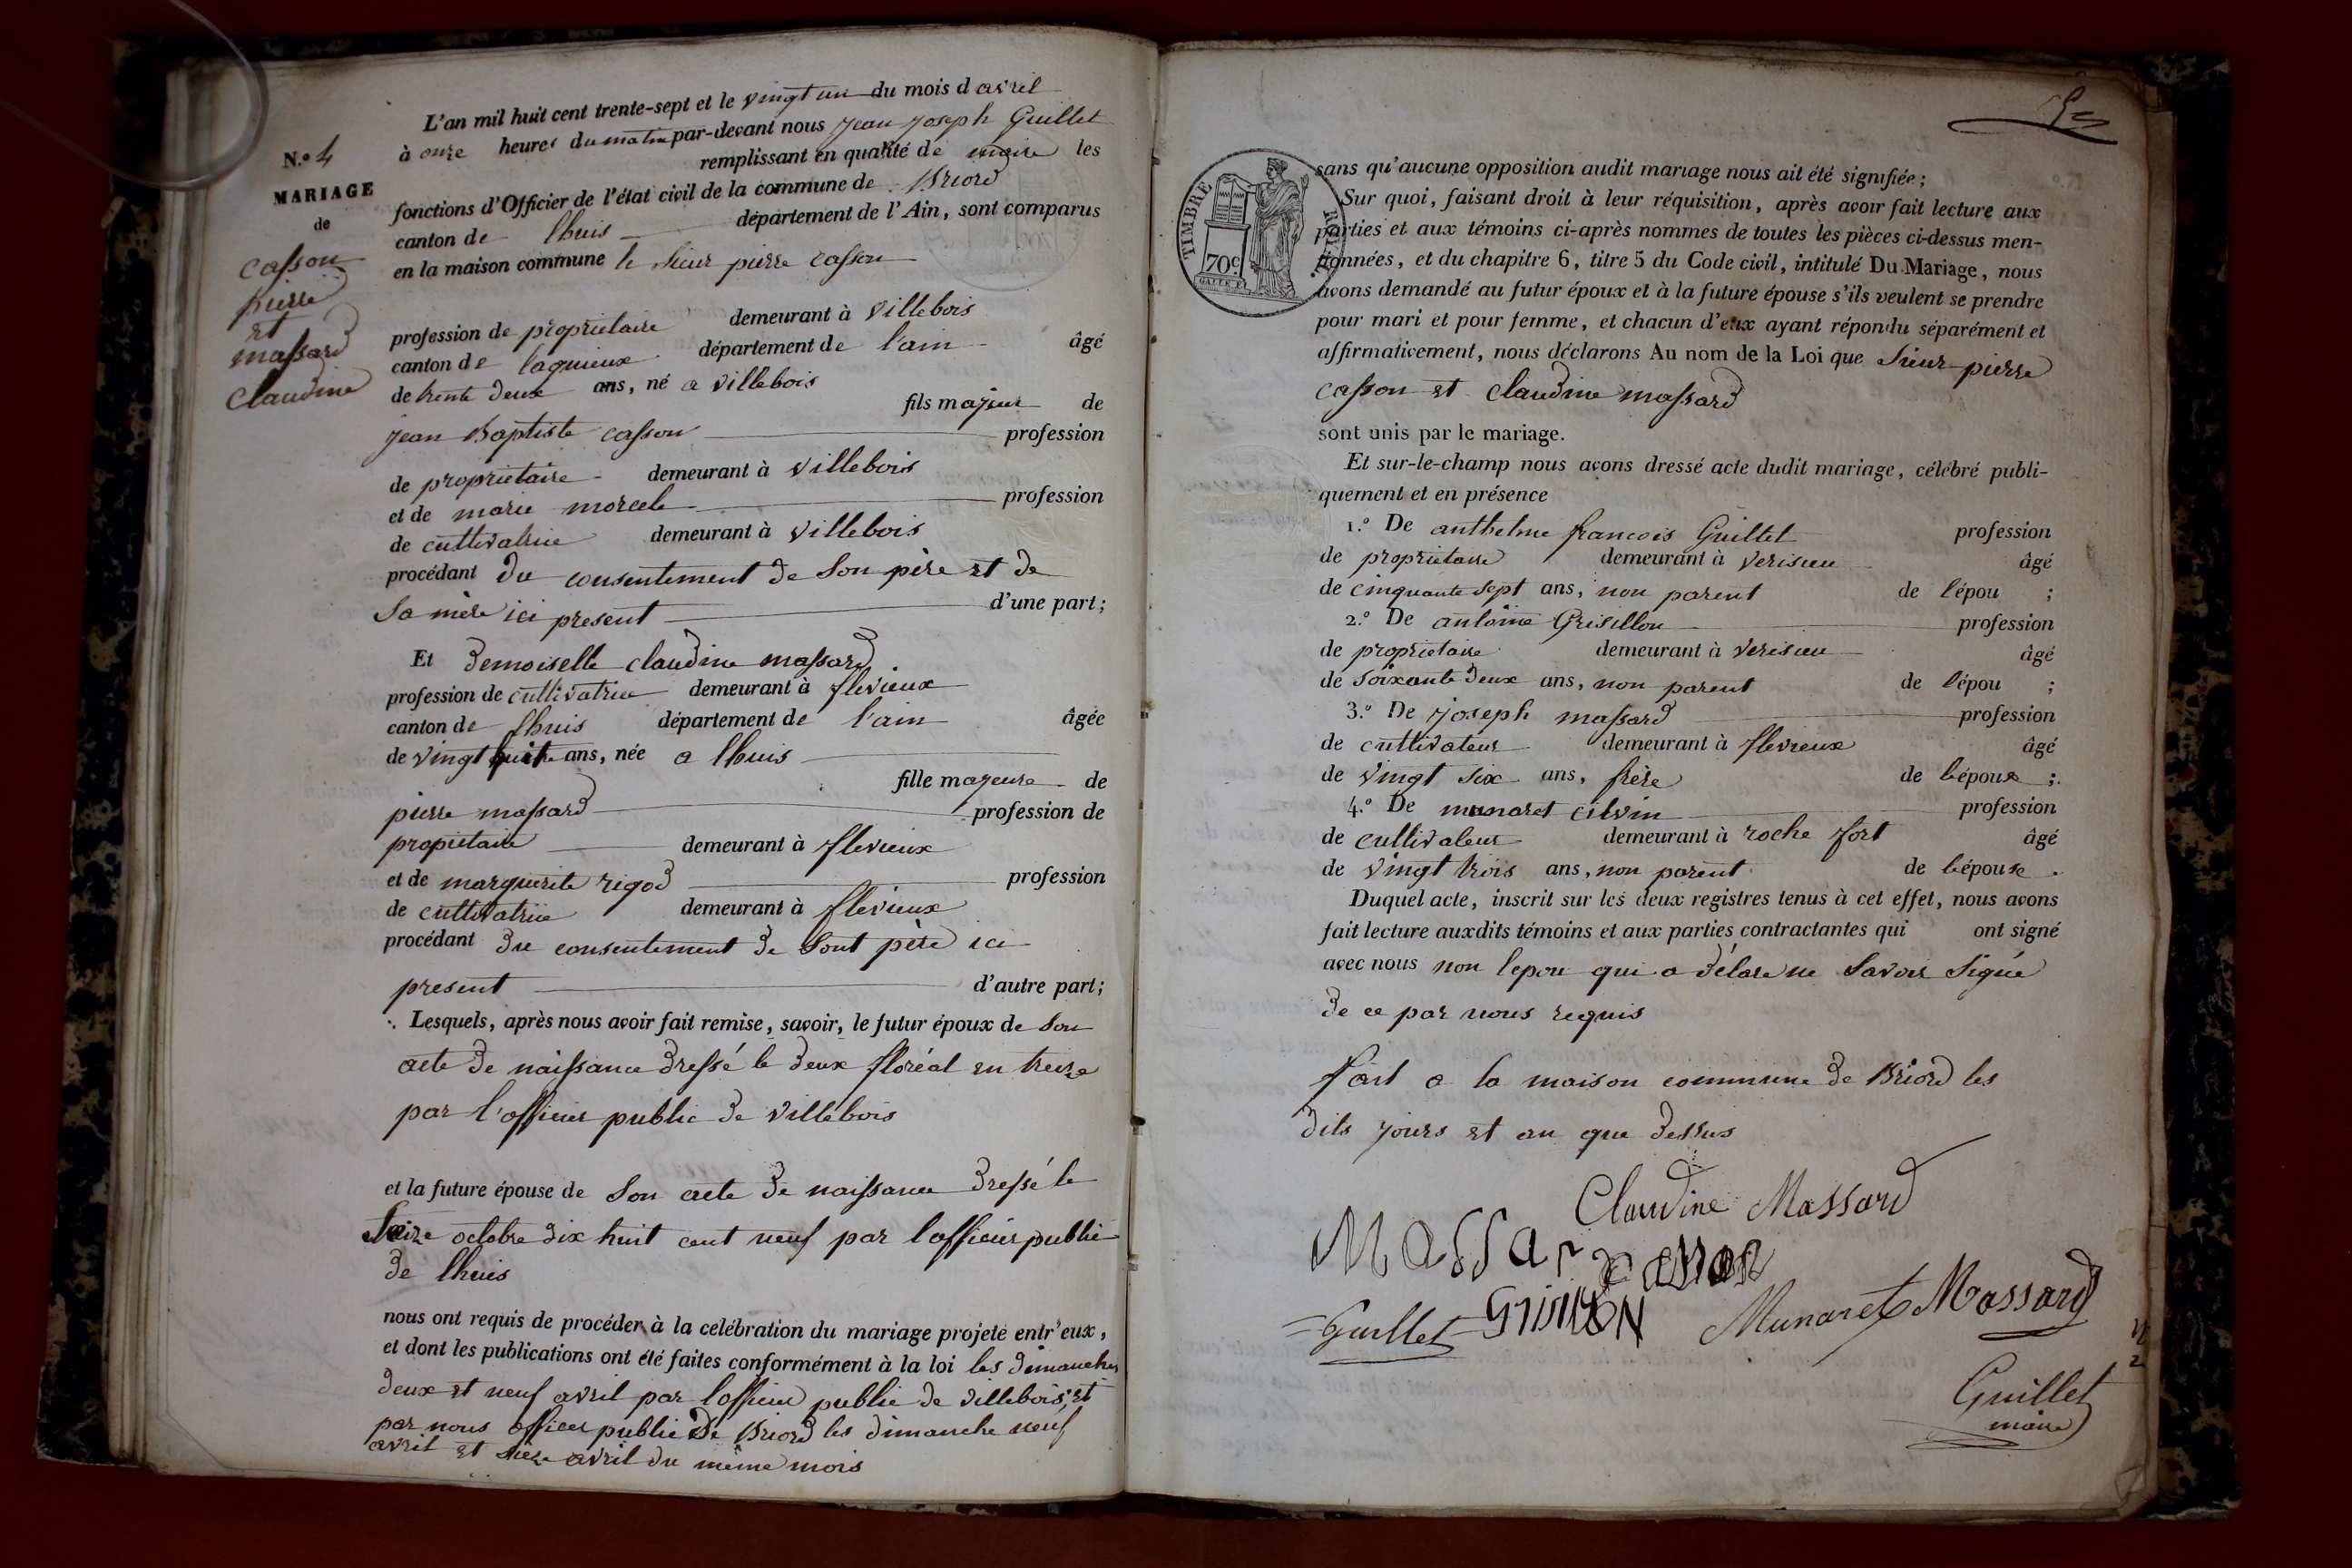 N.º 4
MARIAGE
de
casson
pierre
et
massard
Claudine
L'an mil huit cent trente-sept et le vingt un du mois d avril
à onze heures du matin par-devant nous jean joseph Guillet
remplissant en qualité de maire les
fonctions d'Officier de l'état civil de la commune de Briord
canton de lhuis département de l'Ain, sont comparus
en la maison commune le sieur pierre casson
profession de proprietaire demeurant à villebois
canton de lagnieux département de l'ain âgé
de trente deux ans, né a villebois
fils majeur de
jean Baptiste casson profession
de proprietaire demeurant à villebois
et de marie morcel profession
de cultivatrice demeurant à villebois
procédant du consentement de son père et de
sa mère ici present d'une part;
Et demoiselle claudine massard
profession de cultivatrice demeurant à flevieux
canton de lhuis département de l'ain âgée
de vingt huit ans, née a lhuis
fille majeure de
pierre massard profession de
propietaire demeurant à flevieux
et de marguerite rigod profession
de cultivatrice demeurant à flevieux
procédant du consentement de sont père ici
present d'autre part;
Lesquels, après nous avoir fait remise, savoir, le futur époux de son
acte de naissance dressé le deux floréal en treize
par l'officier public de villebois
et la future épouse de son acte de naissance dressé le
seize octobre dix huit cent neuf par l'officier public
de lhuis
nous ont requis de procéder à la celébration du mariage projeté entr'eux,
et dont les publications ont été faites conformément à la loi les dimanches
deux et neuf avril par l'officier public de villebois, et
par nous officer public de Briord les dimanche neuf
avril et seize avril du même mois
TIMBRE ROYAL
70c
sans qu'aucune opposition audit mariage nous ait été signifiée;
Sur quoi, faisant droit à leur réquisition, après avoir fait lecture aux
parties et aux témoins ci-après nommes de toutes les pièces ci-dessus men-
tionnées, et du chapitre 6, titre 5 du Code civil, intitulé Du Mariage, nous
avons demandé au futur époux et à la future épouse s'ils veulent se prendre
pour mari et pour femme, et chacun d'eux ayant répondu séparément et
affirmativement, nous déclarons Au nom de la Loi que sieur pierre
casson et claudine massard
sont unis par le mariage.
Et sur-le-champ nous avons dressé acte dudit mariage, célébré publi-
quement et en présence
1.º De anthelme francois Guillet profession
de proprietaire demeurant à verisieu âgé
de cinquante sept ans, non parent de l'épou ;
2.º De antoine Grisillon profession
de proprietaire demeurant à verisieu âgé
de soixante deux ans, non parent de l'épou ;
3.º De joseph massard profession
de cultivateur demeurant à flevieux âgé
de vingt six ans, frère de l'épouse ;
4.º De munaret cilvin profession
de cultivateur demeurant à roche fort âgé
de vingt trois ans, non parent de l'épouse .
Duquel acte, inscrit sur les deux registres tenus à cet effet, nous avons
fait lecture auxdits témoins et aux parties contractantes qui ont signé
avec nous non lepou qui a délare ne savoir signé
de ce par nous requis
fait a la maison commune de Briord les
dits jours et an que dessus
Claudine Massard
Massar casson
Guillet Munaret Massard
Guillet
maire